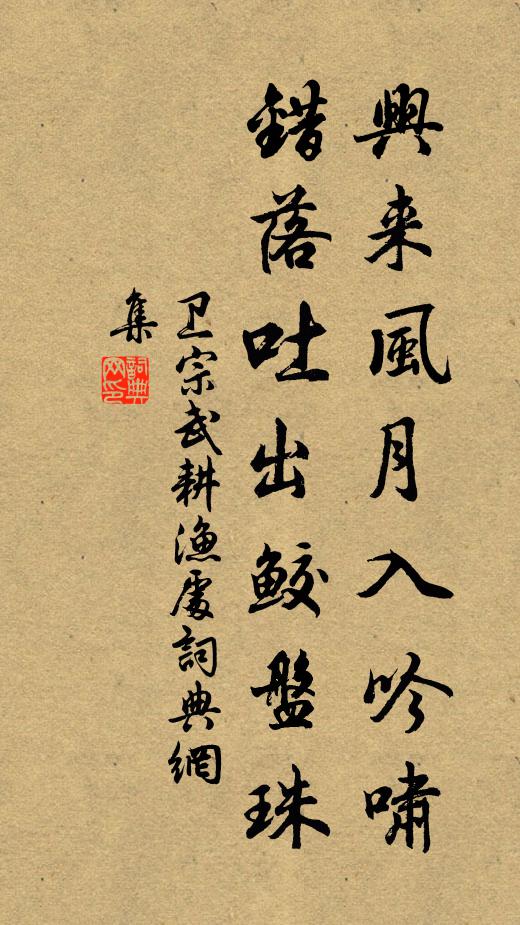 興来風月入吟嘯
錯落吐出鮫盤珠
卫宗武耕漁處詞典網
集
詞典
网印